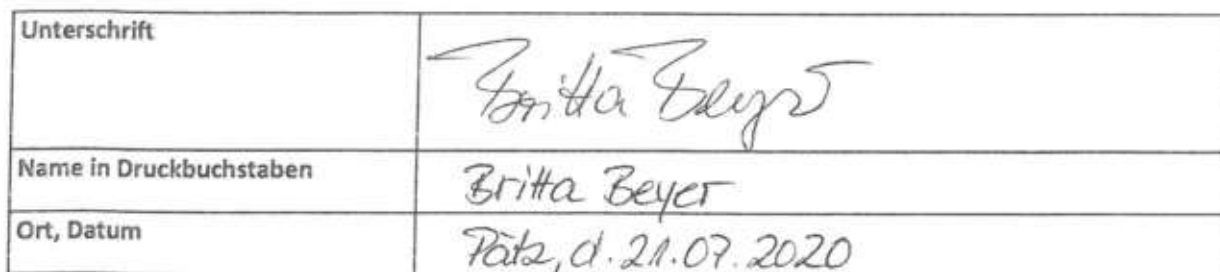 Unterschrift Britta Beyer
Name in Druckbuchstaben Britta Beyer
Ort, Datum Pätz, d. 21.07.2020